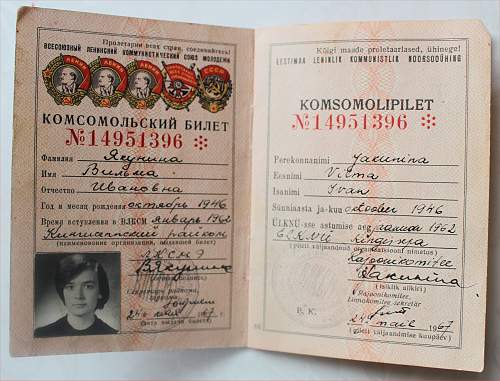 Пролетарии всех стран, соединяйтесь!
ВСЕСОЮЗНЫЙ ЛЕНИНСКИЙ КОММУНИСТИЧЕСКИЙ СОЮЗ МОЛОДЕЖИ
ЛЕНИН
ЛЕНИН
ЛЕНИН
СССР
КОМСОМОЛЬСКИЙ БИЛЕТ
№14951396
Фамилия Якунина
Имя Вильма
Отчество Ивановна
Год и месяц рождения октябрь 1946
Время вступления в ВЛКСМ январь 1962
райком
(наименование организации, выдавшей билет)
ЛКСМЭ
Секретарь райкома,
горкома
1967 г.
(дата выдачи билета)
Kõigi maade proletaarlased, ühinege!
EESTIMAA LENINLIK KOMMUNISTLIK NOORSOOÜHING
KOMSOMOLIPILET
№14951396
Perekonnanimi Jakunina
Eesnimi Vilma
Isanimi Ivan
Sünniaasta ja-kuu oktoober 1946
ÜLKNÜ-sse astumise aeg jaanuar 1962
ELKNÜ Kingissepa
(pileti väljaandnud organisatsiooni nimetus)
Rajoonikomitee
Jakunina
(isiklik allkiri)
Rajoonikomitee,
Linnakomitee sekretär
B. K.
24. mail 1967
(pileti väljaandmise kuupäev)